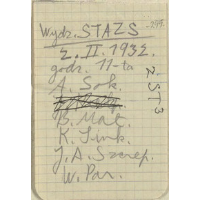 Wydz. STAZS
2. II. 1932.
godz. 11-ta
A. Sok.
B. Mat.
K. Tink.
J. A. Szczep.
W. Par.
2 ST 3